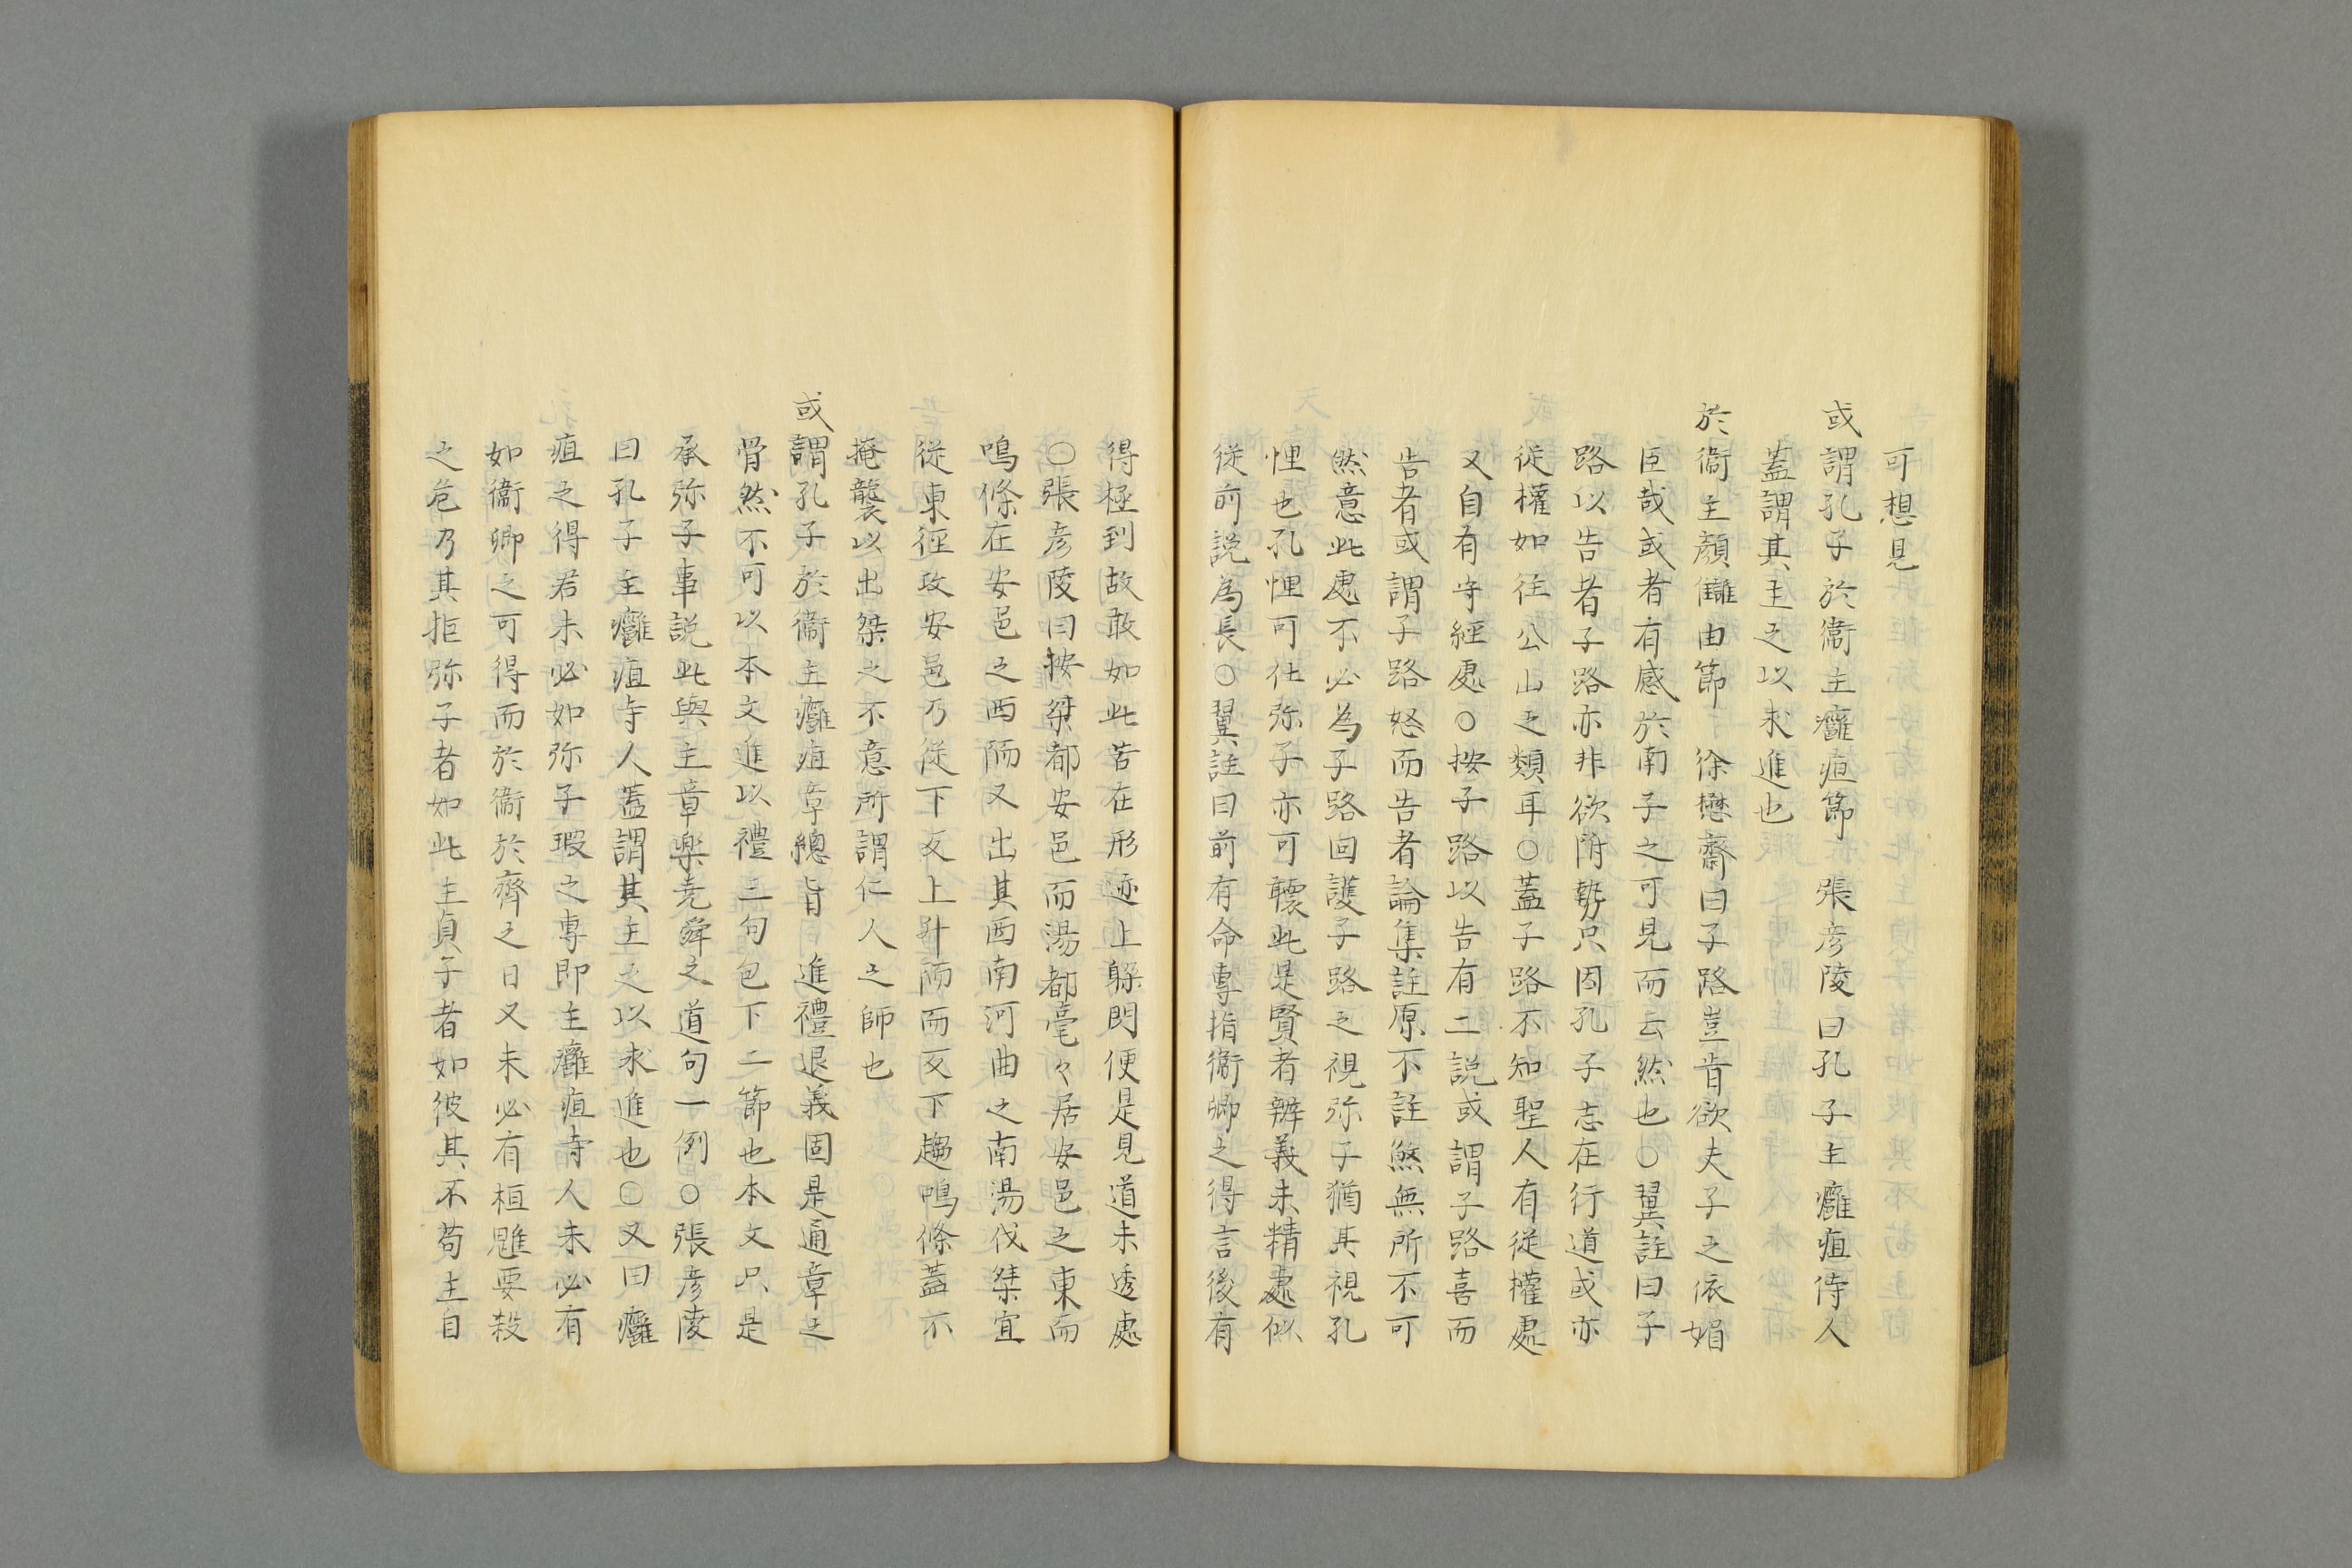 可想見
或謂孔子於衞主癰疽節　張彦陵曰孔子主癰疽侍人
蓋謂其主之以求進也
於衞主顔讎由節　徐懋齋曰子路豈肯欲夫子之依媚
臣哉或者有感於南子之可見而云然也○翼註曰子
路以告者子路亦非欲附勢只因孔子志在行道或亦
従權如往公山之類耳○蓋子路不知聖人有従權處
又自有守經處○按子路以告有二説或謂子路喜而
告者或謂子路怒而告者論集註原不註煞無所不可
然意此處不必為子路回護子路之視弥子猶其視孔
悝也孔悝可仕弥子亦可轅此是賢者辨義未精處似
従前説為長○翼註曰前有命專指衞卿之得言後有
得極到故敢如此苦在形迹上躱閃便是見道未透處
○張彦陵曰按桀都安邑而湯都亳々居安邑之東而
鳴條在安邑之西陑又出其西南河曲之南湯伐桀宜
従東徑攻安邑乃従下反上升陑而反下趨鳴條蓋不
掩襲以出桀之不意所謂仁人之師也
或謂孔子於衞主癰疽章總旨　進禮退義固是通章之
骨然不可以本文進以禮三句包下二節也本文只是
承弥子事説此與主章樂堯舜之道句一例○張彦陵
曰孔子主癰疽寺人蓋謂其主之以求進也○又曰癰
疽之得君未必如弥子瑕之專即主癰疽寺人未必有
如衞卿之可得而於衞於齊之日又未必有桓魋要殺
之危乃其拒弥子者如此主貞子者如彼其不苟主自